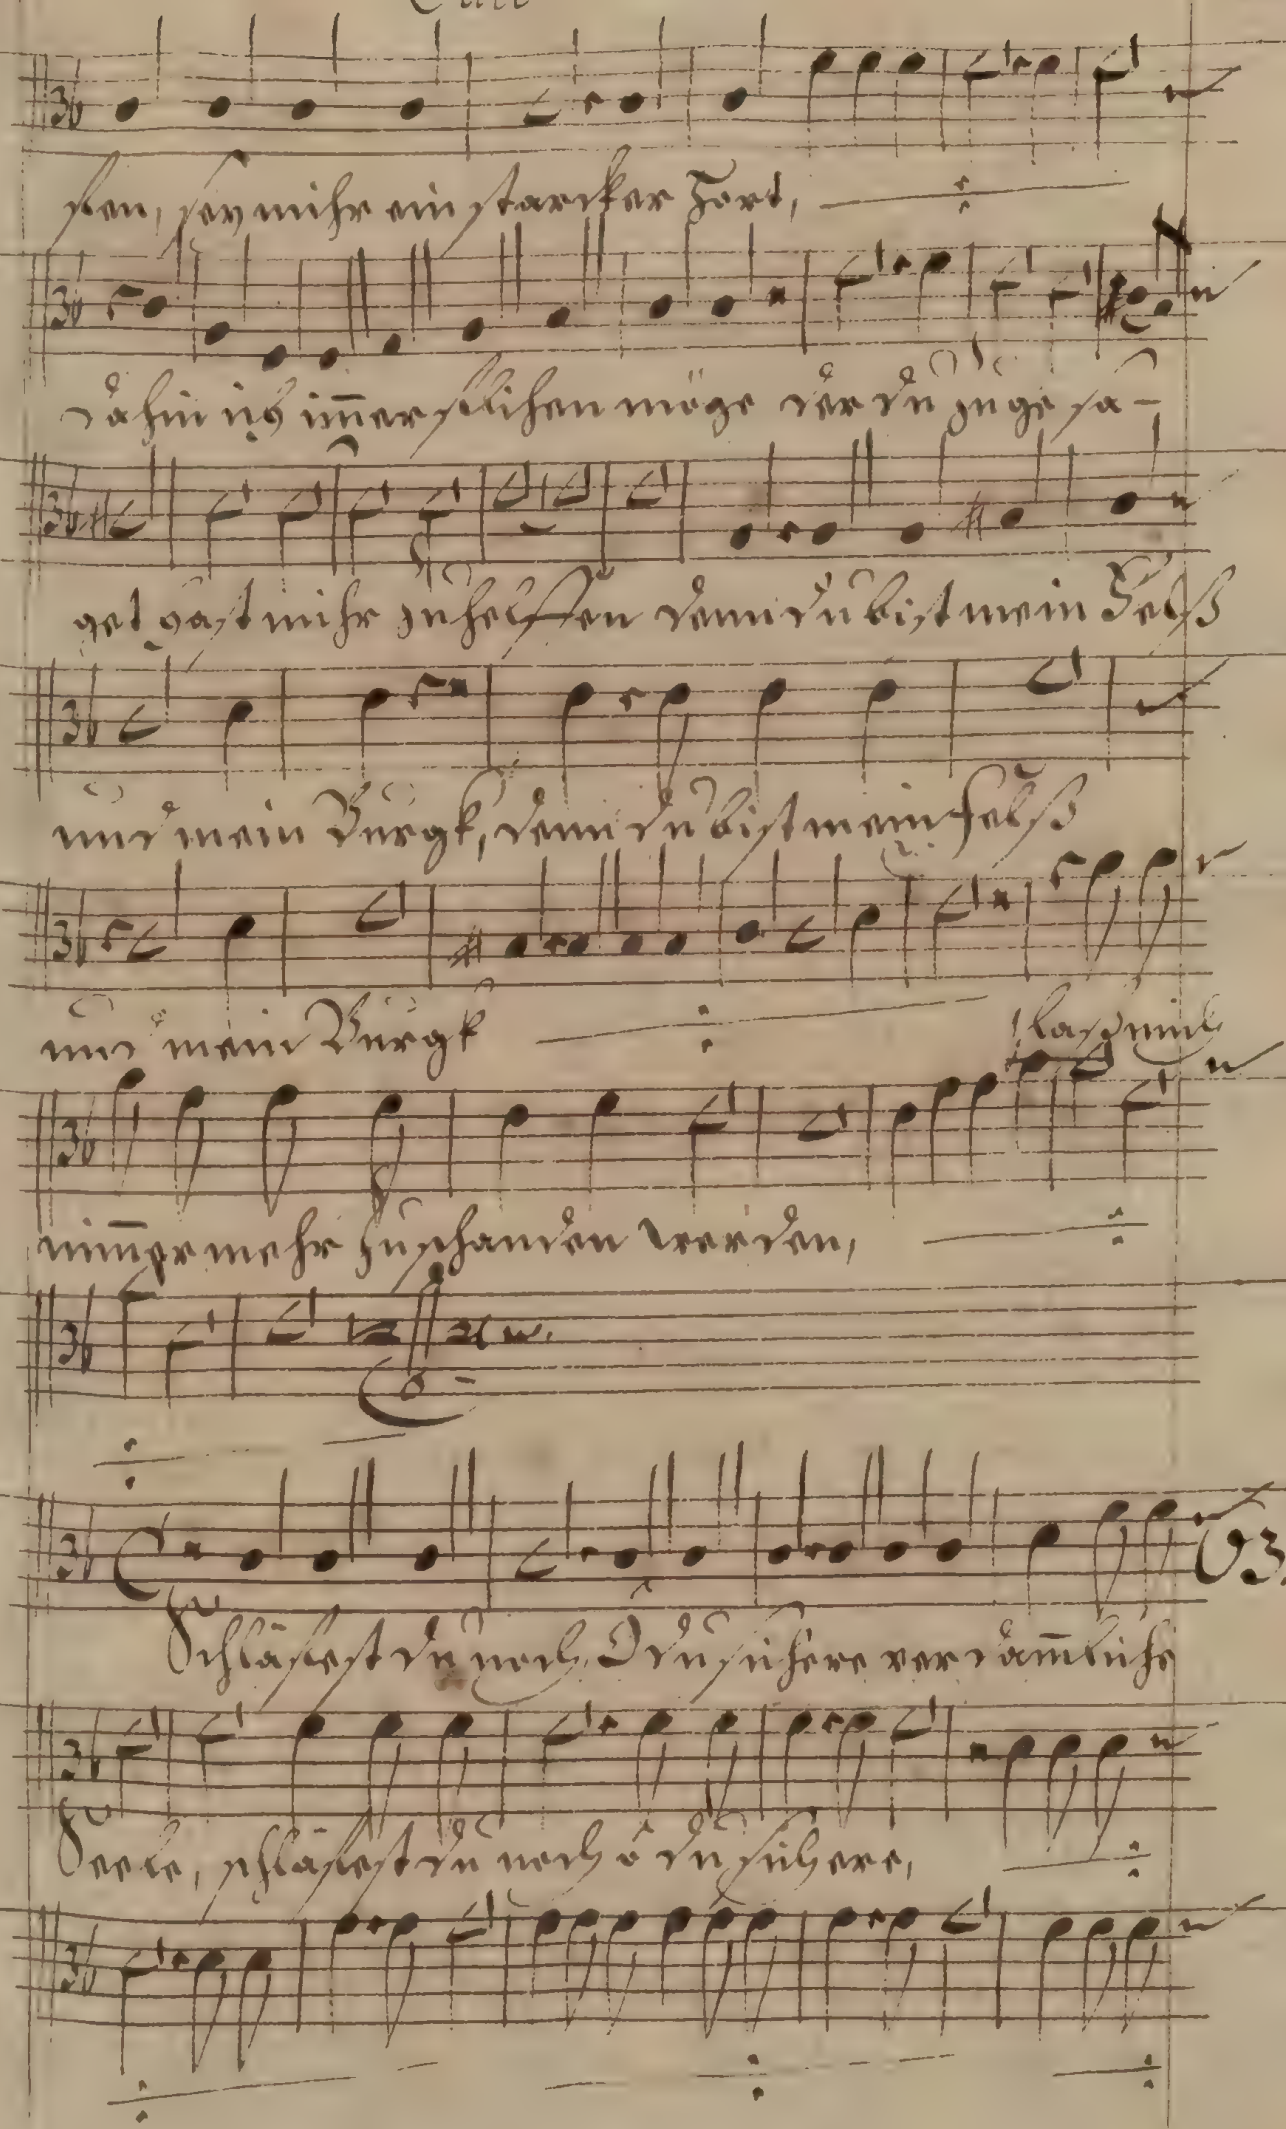 fen, sey mihr ein starcker Hort,
dahin ich im̄er flihen möge der du zuge sa-
get hast mihr zu helffen denn du bist mein Felß
und mein Burgk, denn du bist mein Felß
und mein Burgk
laß mich
nim̄ermehr zuschanden werden,
Schläfest du noch, O du sichere verdam̄liche
Seele, schläfest du noch o du sichere,